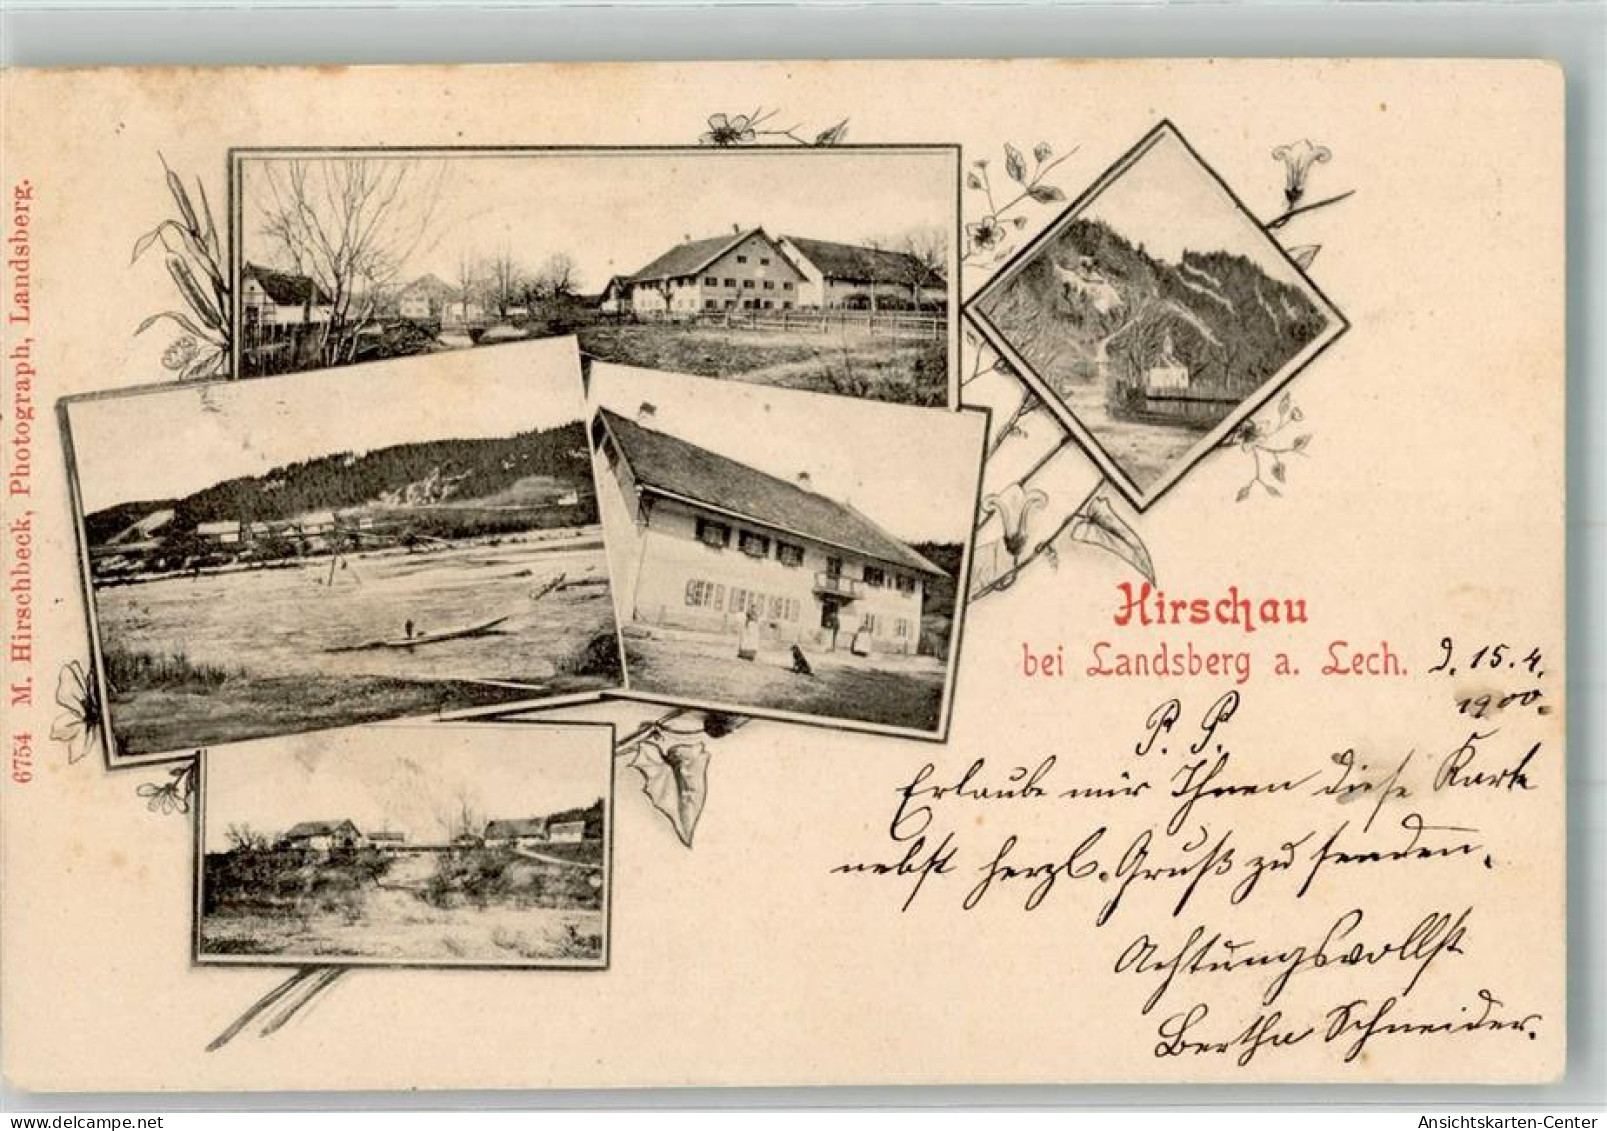 6754 M. Hirschbeck, Photograph, Landsberg.
Hirschau
bei Landsberg a. Lech.
d. 15. 4.
1900.
P. P.
Erlaube mir Ihnen diese Karte
nebst herzl. Gruß zu senden.
Achtungsvollst
Bertha Schneider.
Ansichtskarten-Center